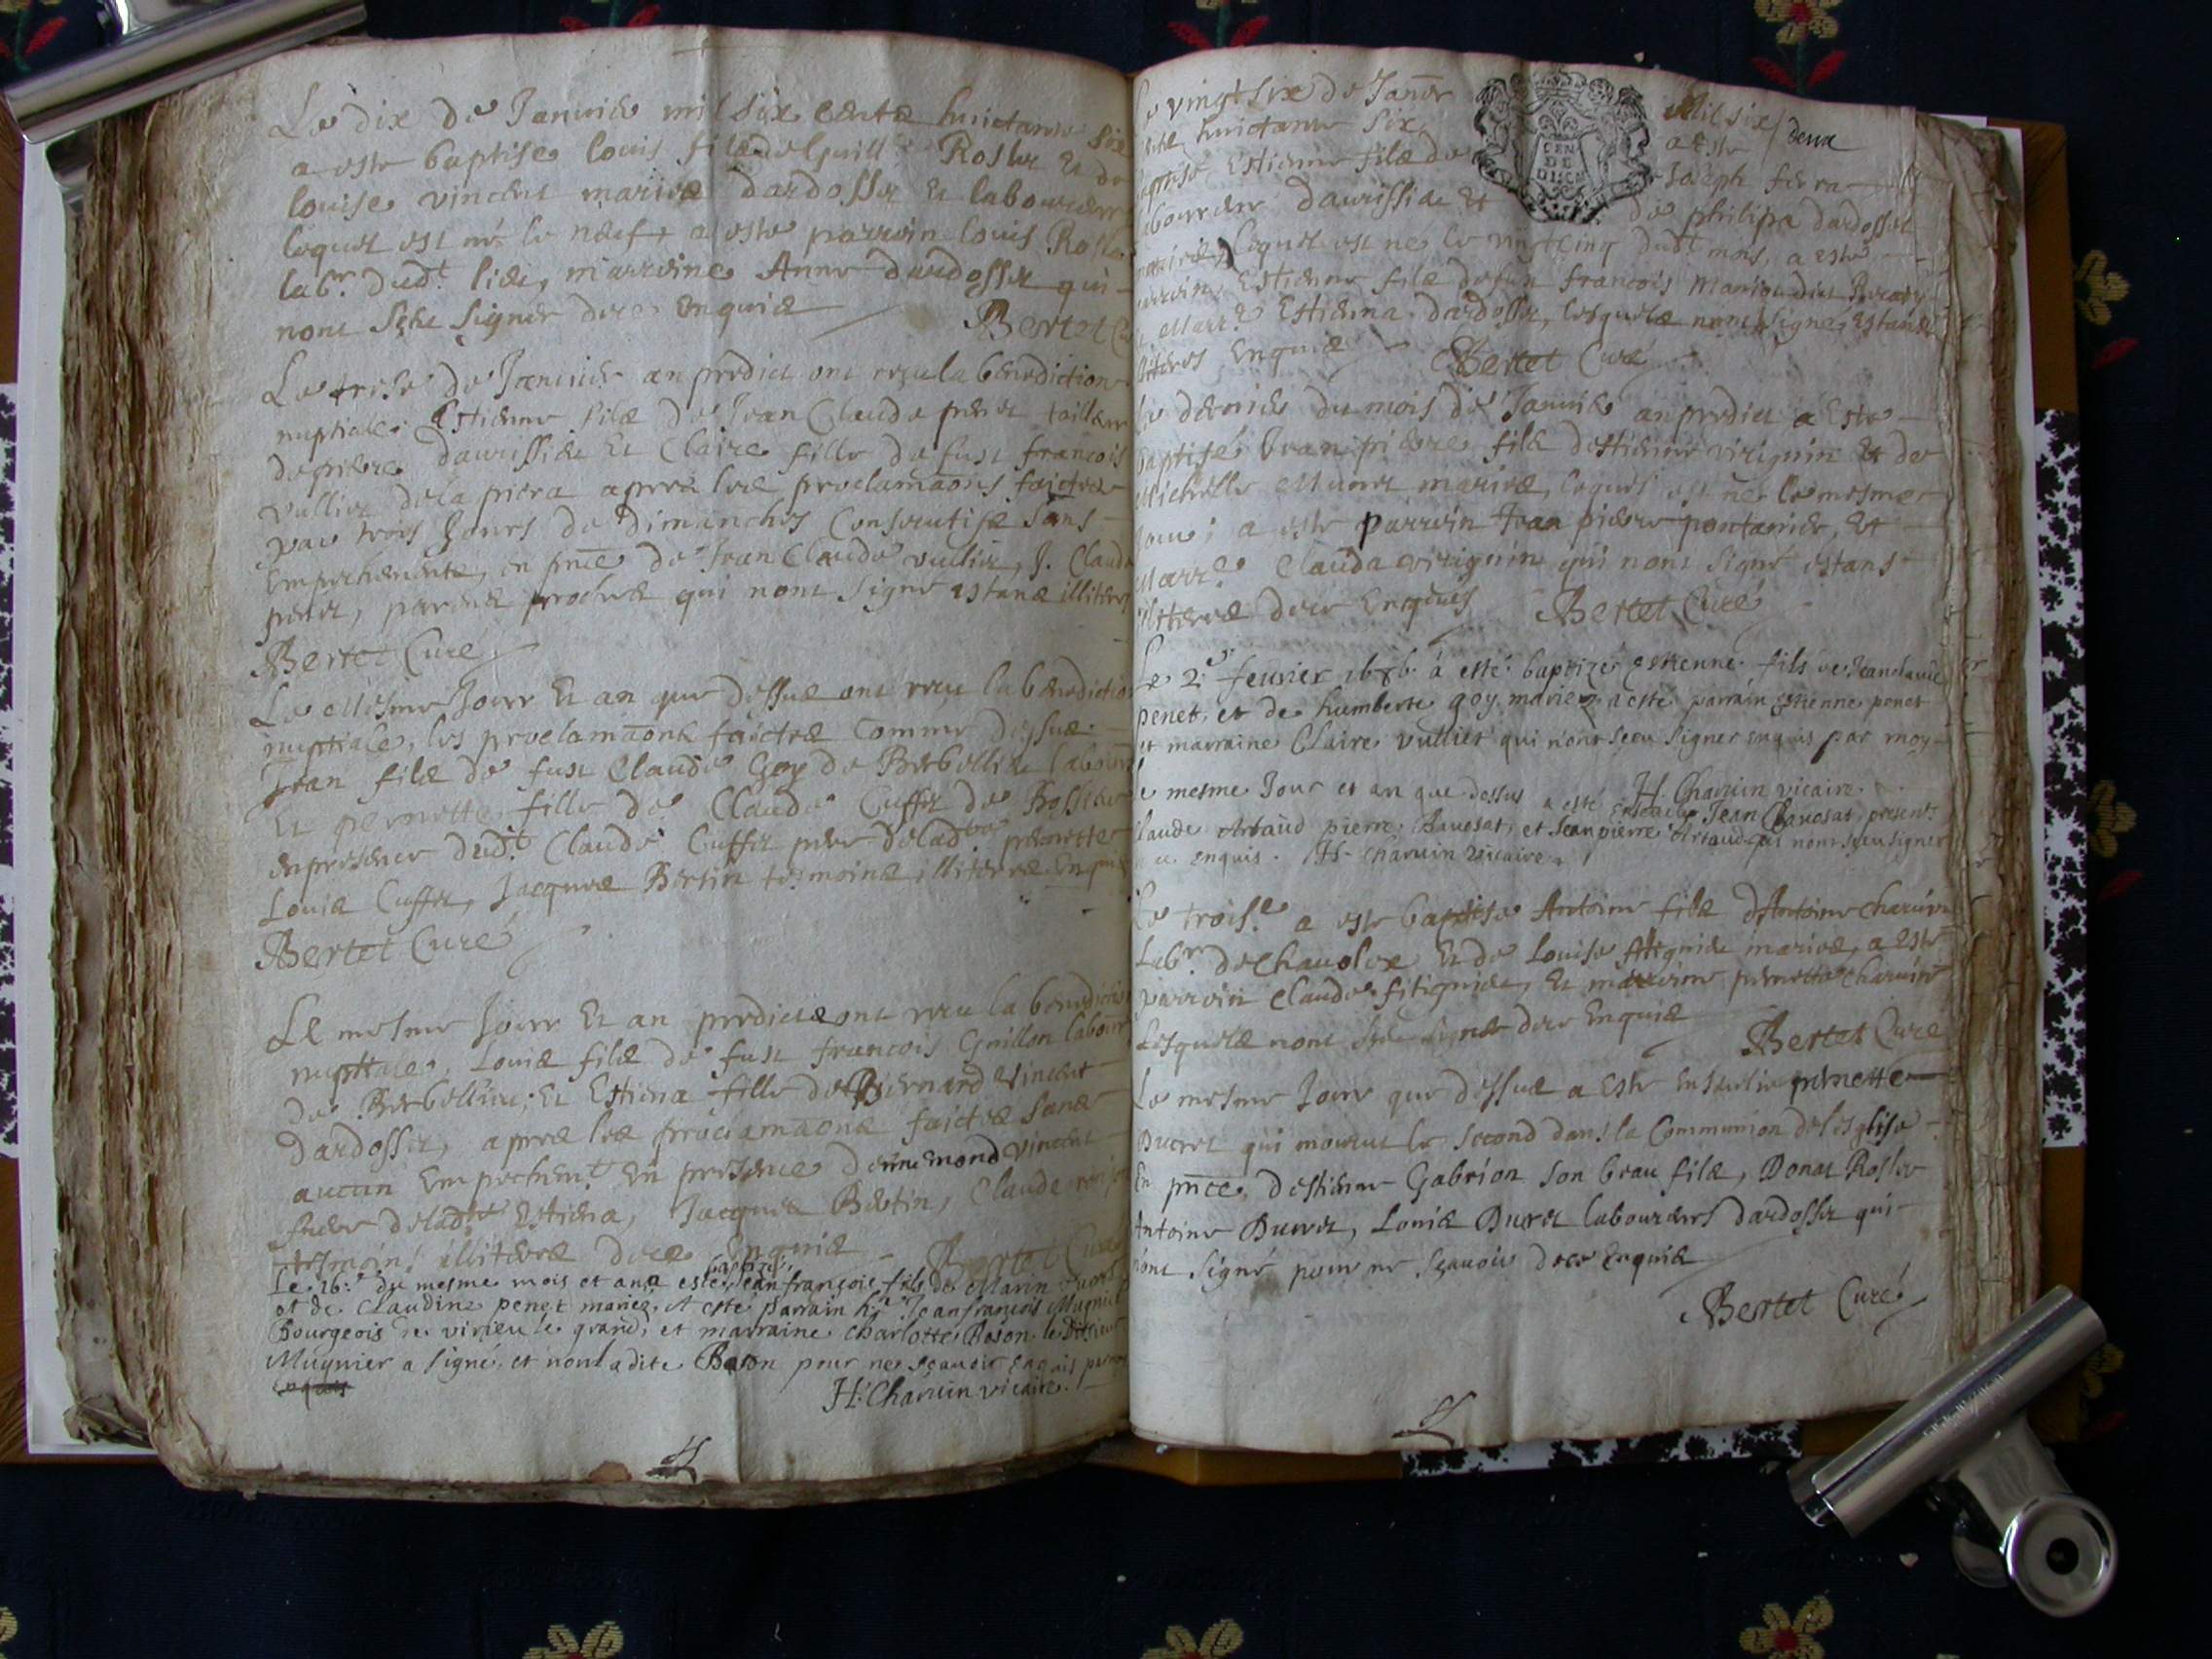 Le dix de Januier mil six centz huictante six
a este baptise louis filz de Guill Roslet Et de
louise vincent mariez dardosset Et laboureur
lequel est né le neuf, a este parrein louis Roslet
labr. dudt. lieu, marreine Anne dardosset qui
nont sçhu signer dece enquis
Bertet
Le treise de Januier an predict ont reçu la benediction
nuptiale Estienne filz de Jean Claude penet tailleur
de pierre daurissieu Et Claire fille de fust francois
vullier de la piera apres les proclamaons faictes
par trois Jours de Dimanches Consecutifz sans
Empechementz, en pnce de Jean Claude vullier, J. Claude
penet, parens proches qui nont signe estans illiteres
Bertet Curé
Le Mesme Jour Et an que dessus ont reçu la benediction
nuptiale, les proclamaons faictes Comme dessus
Jean filz de fust Claude Goy de Barbollieu labour
Et pernette fille de Claude Cuffet de Rossieu
en presence dudt. Claude Cuffet pere de ladte pernette
Louis Cuffet, Jacques Bertin tesmoins illiteres Enquis
Bertet Curé
Le mesme Jour Et an predicts ont reçu la benediction
nuptiale, Louis filz de fust francois Guillon labour
de Barbollieu; Et Estiena fille de Bernard vincent
dardosset, apres les proclamaons faictes sans
aucun Empechemt En presence dennemond vincent
frere de ladte Estiena, Jacques Bertin, Claude
tesmoins illiteres dece Enquis Bertet Curé
Le 26.e du mesme mois et an a esté baptizé Jean françois fils de Marin
et de Claudine penet mariez, A esté parrain hr Jean françois Mugnier
Bourgeois de virieu le grand, et marraine Charlotte Bason le dit sieur
Mugnier a signé, et non ladite Bason pour ne sçauoir enquis par moy
enquis
H: Charuin vicaire.
Le vingt six de Januer Mil six
cents huictante six a Este deux
baptisé Estienne filz de Joseph ferra
laboureur daurissieu Et de philipa dardosset
mariez, lequel est ne le vingtcinq dudt mois, a este
parrein Estienne filz de fun francois
Et Marre Estiena dardosset, lesquelz nont signé Estans
illiteres Enquis Bertet Curé
Le dernier du mois de Januier an predict a Este
Baptisé Jean pierre filz destienne virignin Et de
Michelle Munet mariez, lequel est né le mesme
Jour; a este parrein Jean piere pontanier, Et
Marre Clauda virignin qui nont signe estans
illiteres dece Enquis Bertet Curé
Le 2.e feurier 1686. à esté baptizé estienne fils de Jeanclaude
penet, et de humberte goy mariez, a esté parrain estienne penet
et marraine Claire vullier qui n'ont sceu signer enquis par moy
H. Charuin vicaire.
Le mesme Jour et an que dessus a esté enseuely Jean Chauosat, presents
Claude Artaud pierre Chauosat, et Jean pierre Artaud qui nont sceu signer
de ce enquis. H- Charuin vicaire.
Le troise a este baptise Antoine filz dAntoine charuin
Labr. de Chauolex Et de Louise fitignier mariez, a este
parrein Claude fitignier, Et marreine pernette charuin
Lesquelz nont sçhu signer dece Enquis
Bertet Curé
Le mesme Jour que dessus a Este Enseulie pernette
Ducret qui mourut le second dans la Communion de lesglise
En pnce, destienne Gabrion son beau filz, Donat Roslet
Antoine Ducret, Louis Ducret laboureurs dardosset qui
nont signé pour ne sçauoir dece Enquis
Bertet Curé